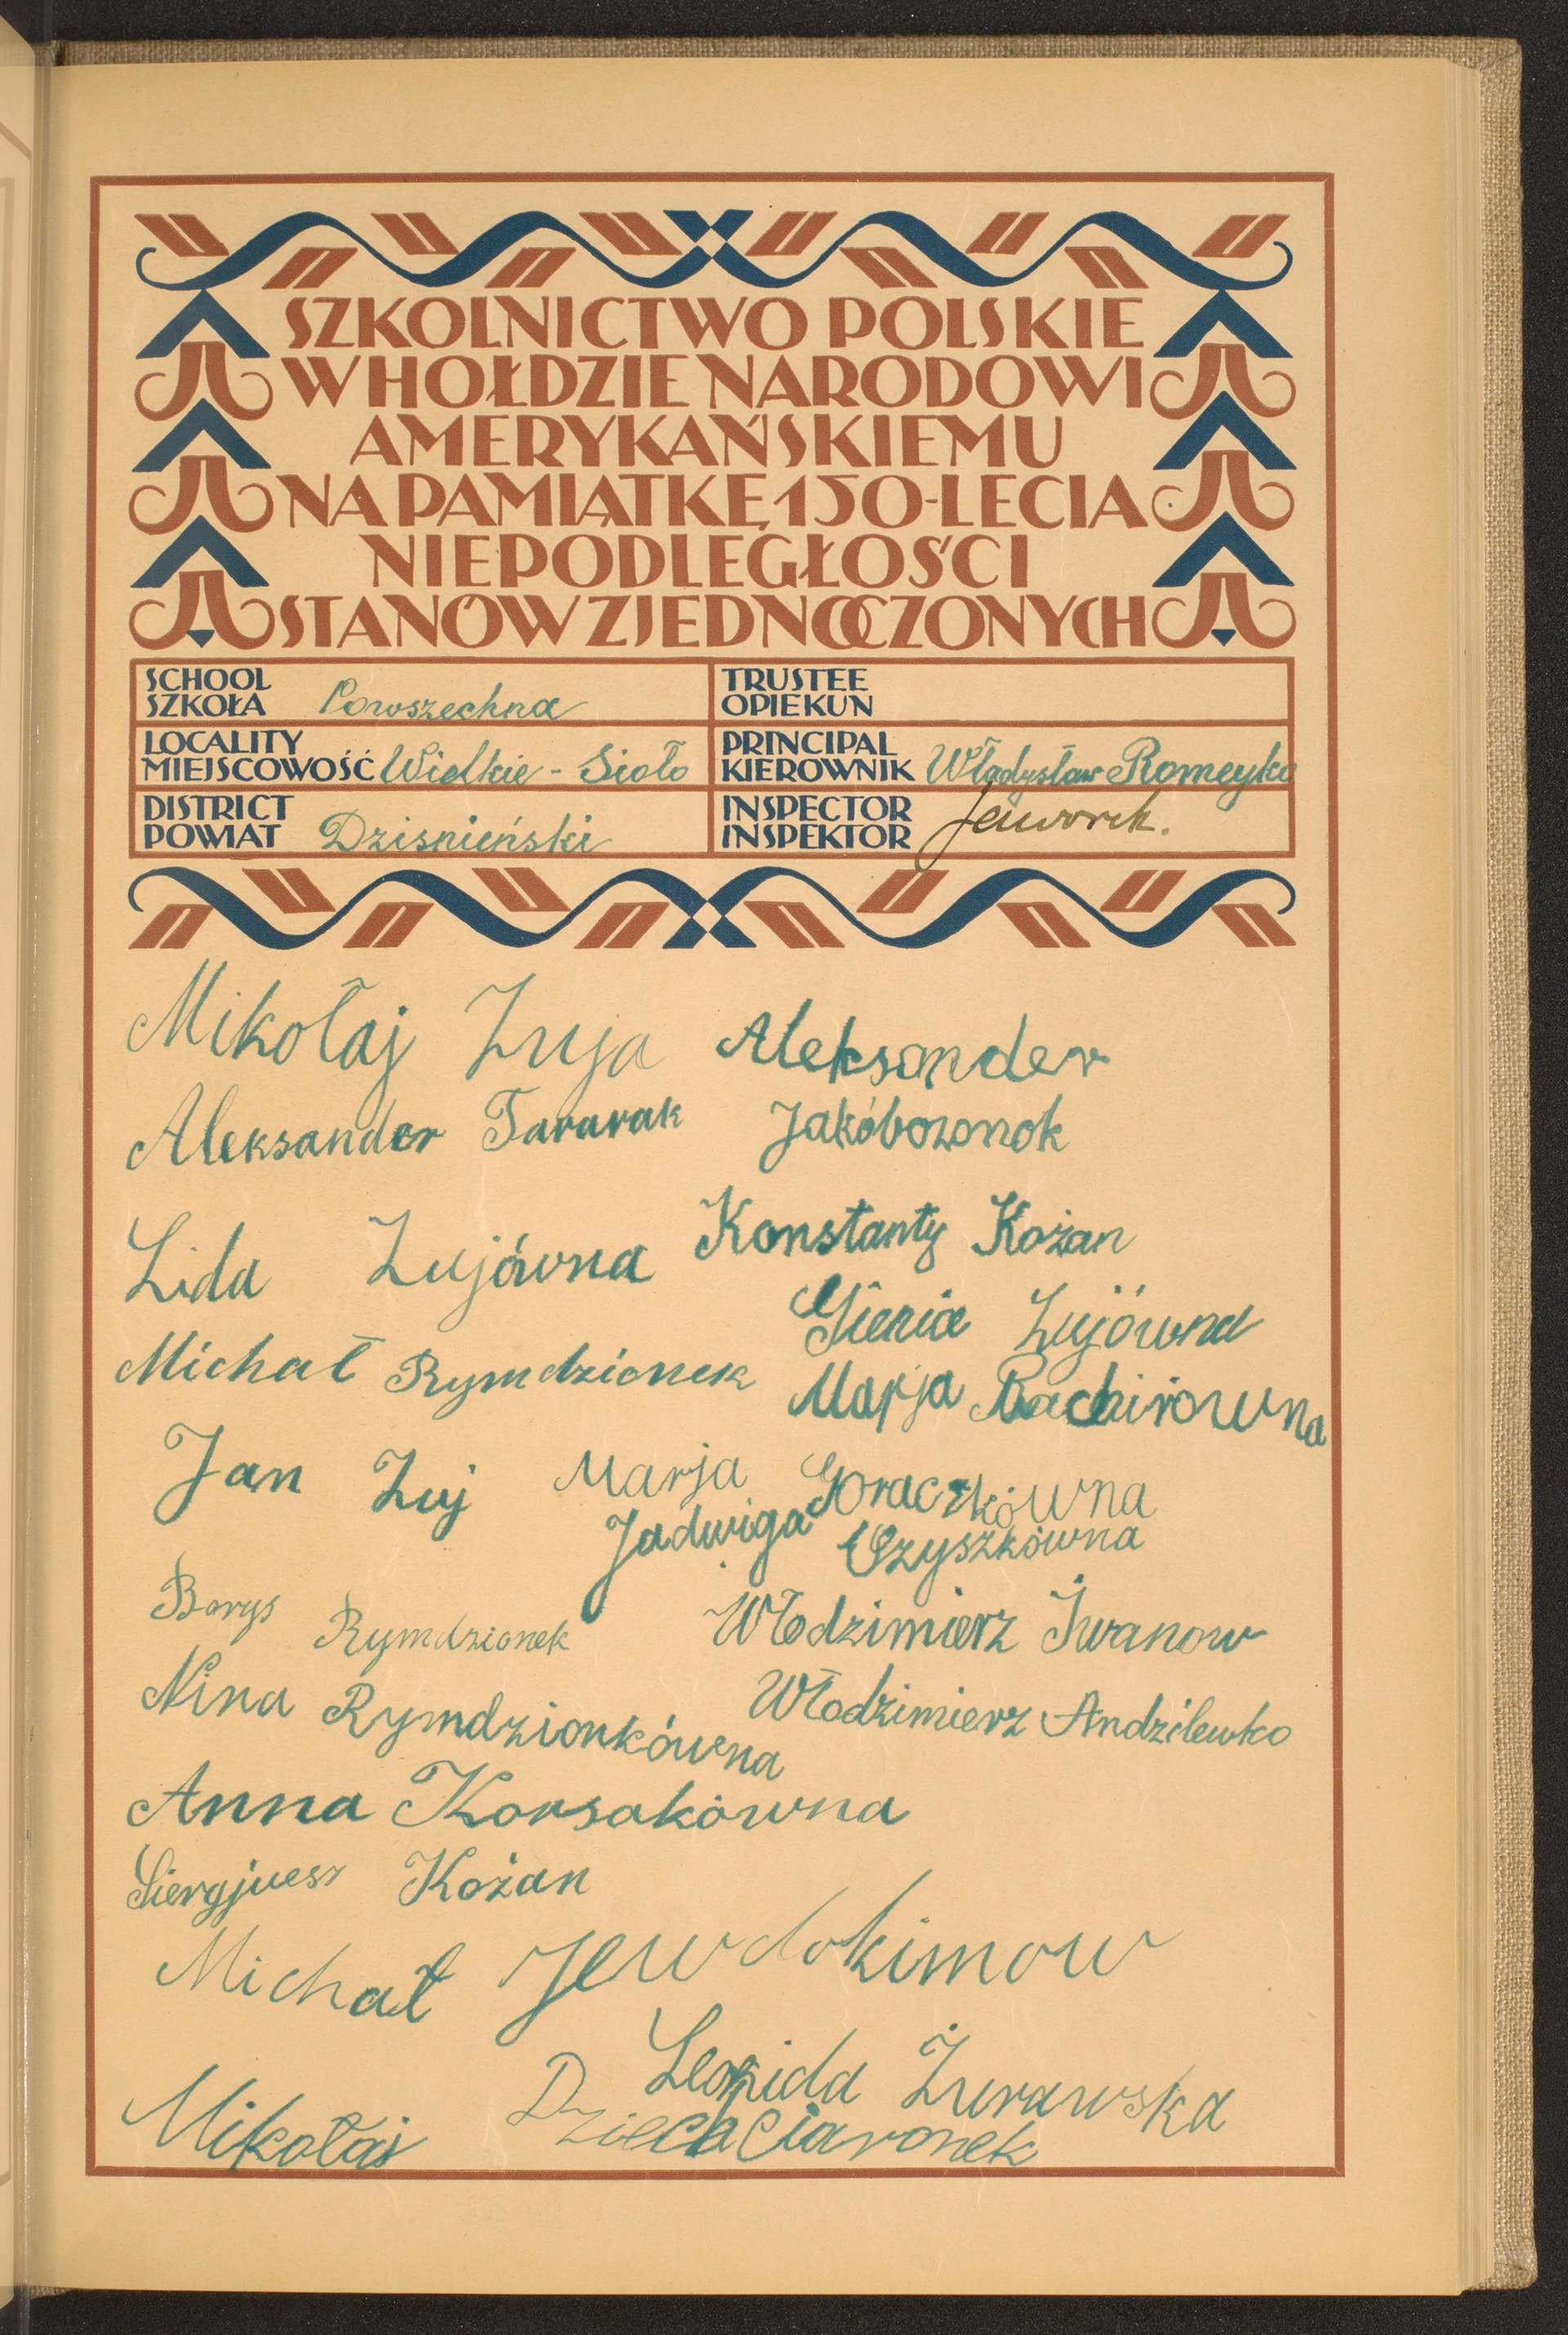 SZKOLNICTWO POLSKIE
W HOŁDZIE NARODOWI
AMERYKAŃSKIEMU
NA PAMIĄTKĘ 150-LECIA
NIEPODLEGŁOŚCI
STANÓW ZJEDNOCZONYCH
SCHOOL
SZKOŁA Powszechna
TRUSTEE
OPIEKUN
LOCALITY
MIEJSCOWOŚĆ Wielkie - Sioło
PRINCIPAL
KIEROWNIK Władysław Romeyko
DISTRICT
POWIAT Dzisnieński
INSPECTOR
INSPEKTOR Jaworek.
Mikołaj Zuja
Aleksander
Aleksander Tararak
Jakóbozonok
Lida Zujówna
Konstanty Kożan
Gienia Zujówna
Michał Rymdzionek
Marja Rachirówna
Jan Zuj
Marja Goraczkówna
Jadwiga Czyszkówna
Borys Rymdzionek
Włodzimierz Iwanow
Nina Rymdzionkówna
Włodzimierz Andzilewko
Anna Korsakówna
Siergjuesz Kożan
Michał Jewdokimow
Leonida Żurawska
Mikołaj Dziechciaronek